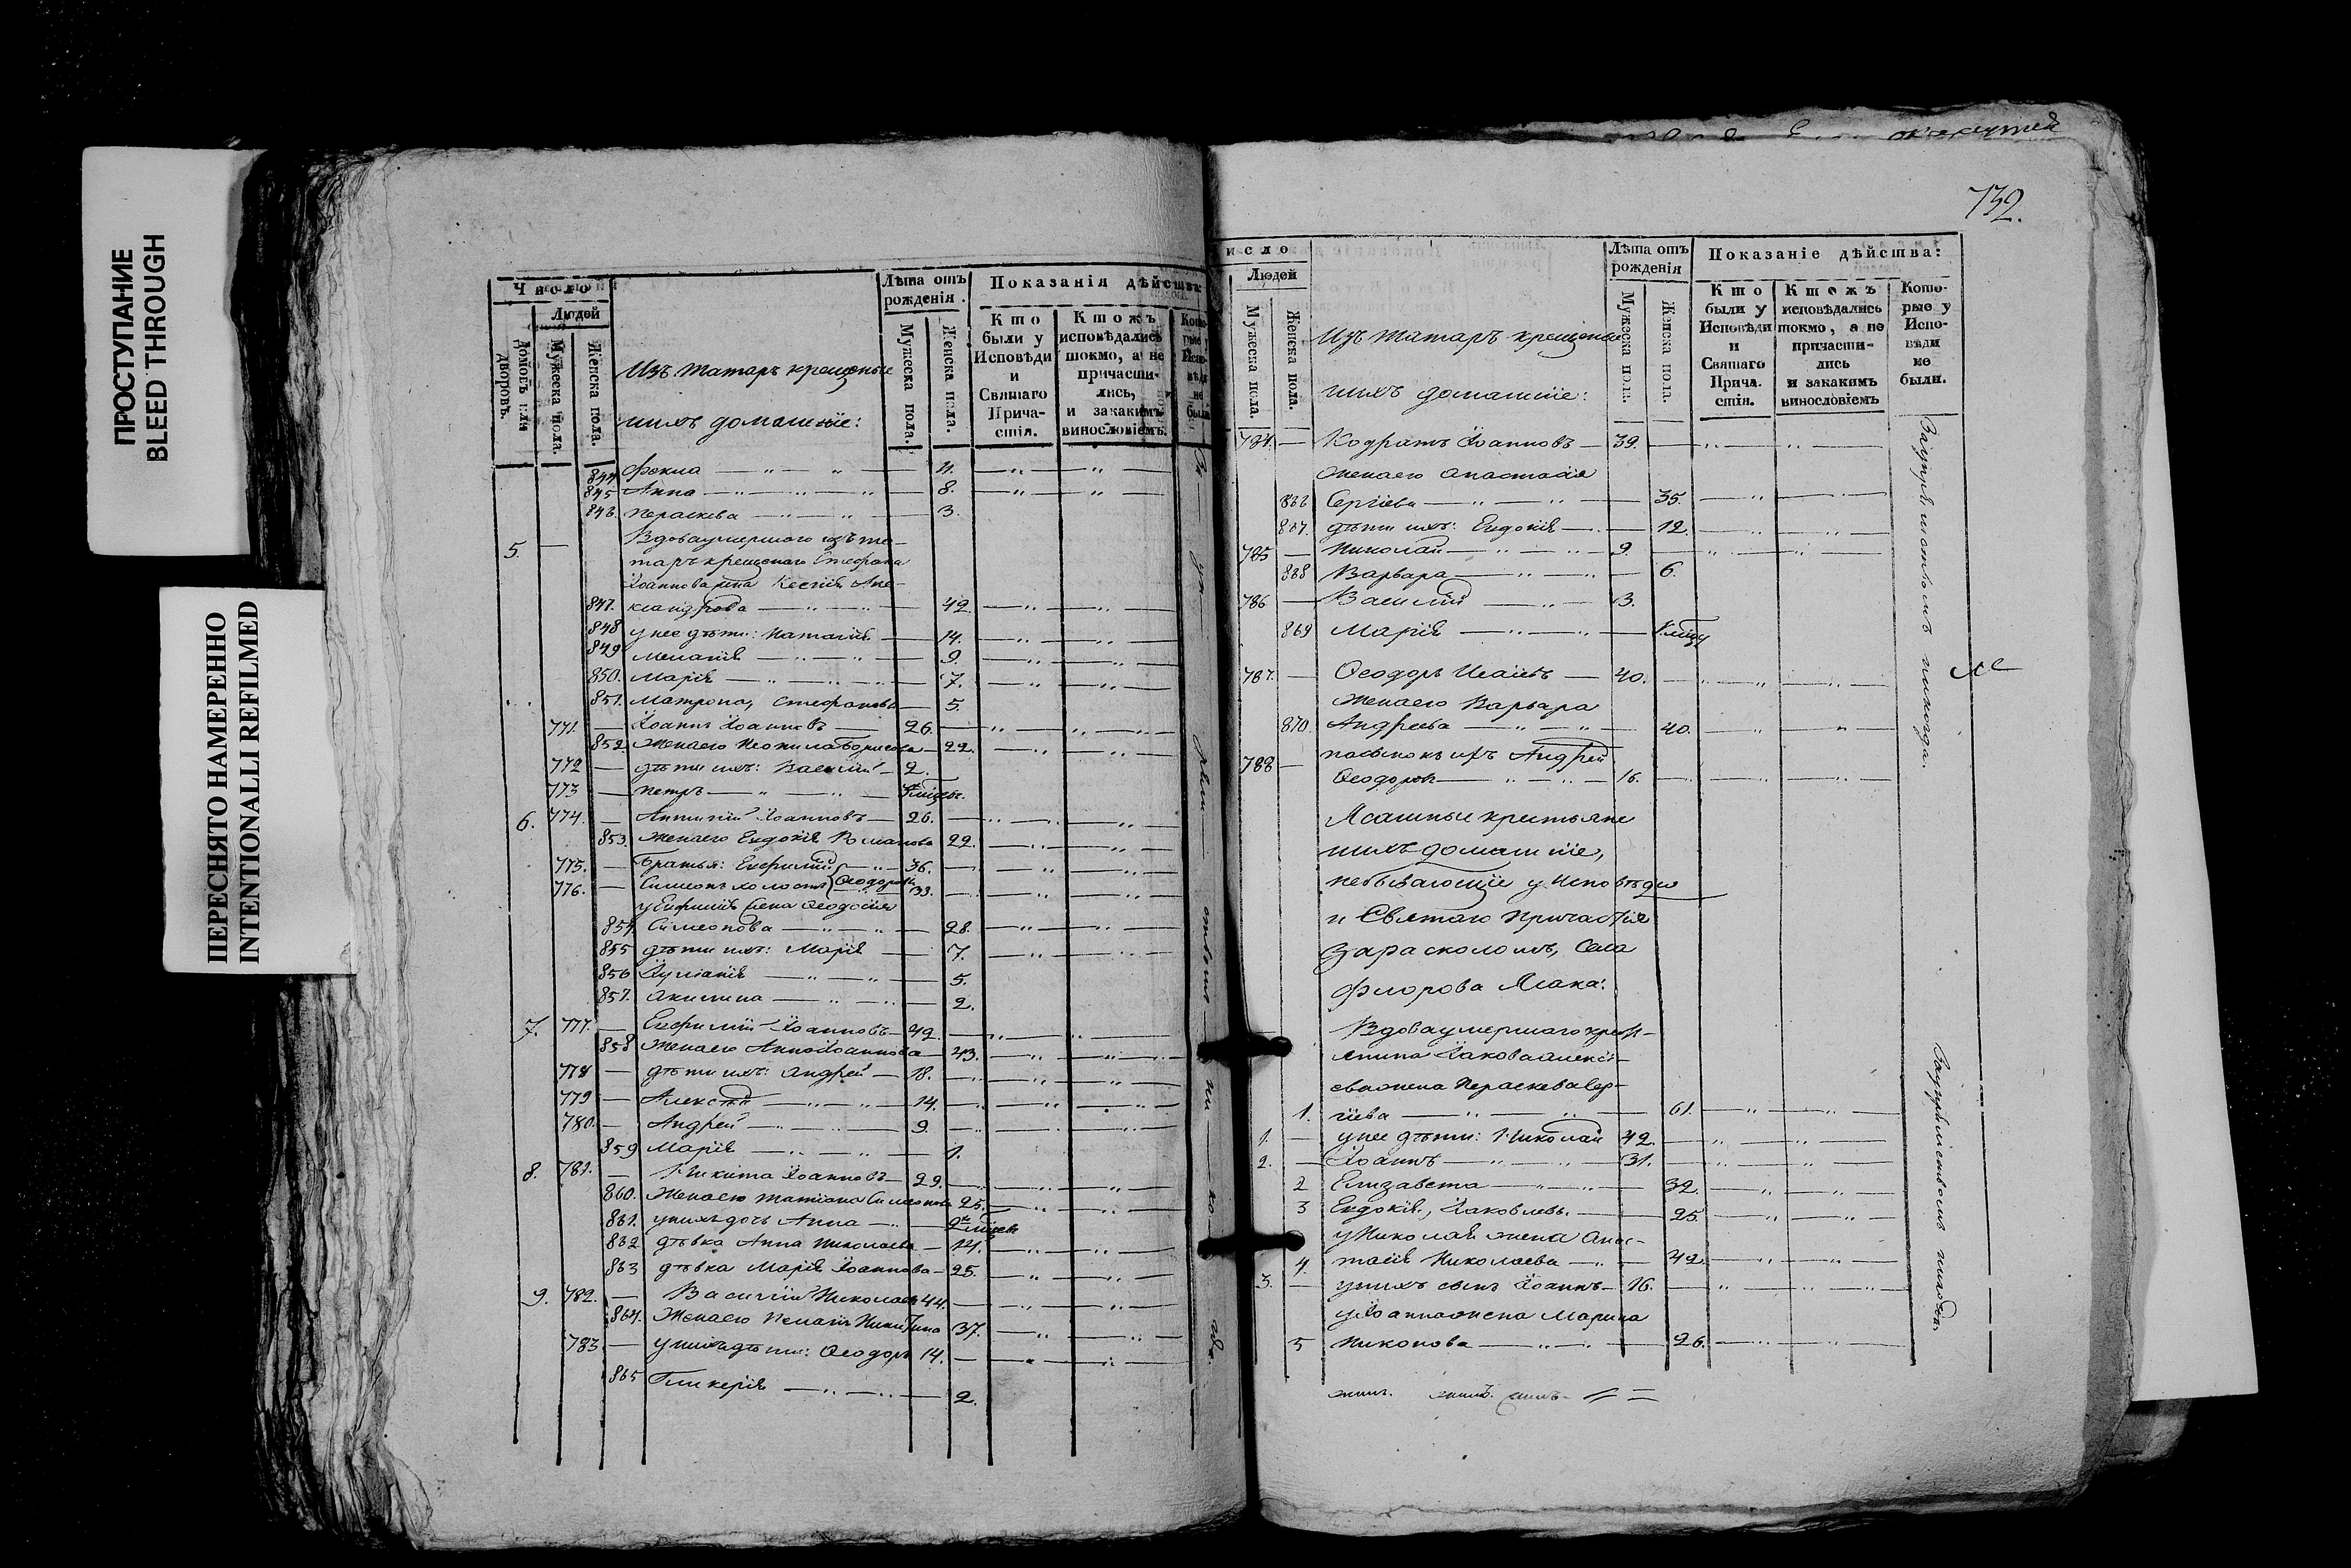 ПРОСТУПАНИЕ
BLEED THROUGH
ПЕРЕСНЯТО НАМЕРЕННО
INTENTIONALLI REFILMED
Число
Людей
домовъ или дворовъ.
Мужеска пола.
Женска пола.
Изъ татаръ крещеные
ихъ домашніе:
Лѣта отъ рожденія.
Мужеска пола.
Женска пола.
Показанія дѣйства
Кто были у Исповѣди и Святаго Прича-стія.
Ктожъ исповѣдались токмо, а не причасти-лись, и закакимъ винословіемъ.
844. Фекла 11.
845 Анна 8.
846. Параскева 3.
5. Вдова умершаго изъ та-
таръ крещенаго Стефана
Іоаннова жена Ксенія Але-
847. ксандрова 42.
848 у нее дѣти: Наталія 14.
849 Меланія 9.
850. Марія 7.
851. Матрона, Стефановы 5.
771. Іоаннъ Іоанновъ 26.
852. Жена его Неонила Борисова 22.
772 дѣти ихъ: Василій 2.
773 Петръ
6. 774. Іоанновъ 26.
853. Жена его Евдокія Романова 22.
775. братья: Евфимій 36.
776. Симеонъ холостъ Ѳеодоровы 33.
у Евфимія жена Ѳеодосія
854. Симеонова 28.
855 дѣти ихъ: Марія 7.
856 Іуліанія 5.
857. Акилина 2.
7. 777. Евфимій Іоанновъ 42.
858 Жена его Анна Іоаннова 43.
778 дѣти ихъ: Андрей 18.
779 Алексѣй 14.
780. Андрей 9.
859 Марія 1.
8. 781. Никита Іоанновъ 29.
860. Жена его Татіана Симеонова 25.
861. у нихъ дочь Анна
862 дѣвка Анна Николаева 14.
863 дѣвка Марія Іоаннова 25.
9. 782. Василій Николаевъ 44.
864. Жена его Пелагія Никитина 37.
783. у нихъ дѣти: Ѳеодоръ 14.
865 Гликерія 2.
732.
исло
Людей
Мужеска пола.
Женска пола.
Изъ татаръ крещеные
ихъ домашніе:
Лѣта отъ рожденія
Мужеска пола.
Женска пола.
Показаніе дѣйства:
Кто были у Исповѣди и Святаго Прича-стія.
Ктожъ исповѣдались токмо, а не причасти-лись и закакимъ винословіемъ
Кото-рые у Испо-вѣди не были.
784. Кодратъ Іоанновъ 39.
Жена его Анастасія
866 Сергіева 35.
867. дѣти ихъ: Евдокія 12.
785 Николай 9.
868 Варвара 6.
786 Василій 3.
869 Марія
787. Ѳеодоръ Исаіевъ 40.
Жена его Варвара
870. Андреева 40.
788 пасынокъ ихъ Андрей
Ѳеодоровъ 16.
Ясашные крестьяне
ихъ домашніе,
небывающіе у Исповѣди
и Святаго Причастія
за расколомъ, Села
Флорова
Вдова умершаго крест-
янина Іакова Алексѣ-
ева жена Параскева Сер-
1. гіева 61.
1. у нее дѣти: Николай 42.
2. Іоаннъ 31.
2 Елизавета 32.
3 Евдокія, Іаковлевы. 25.
у Николая жена Анас-
4. тасія Николаева 42.
3. у нихъ сынъ Іоаннъ 16.
у Іоанна жена Марина
5 Никонова 26.